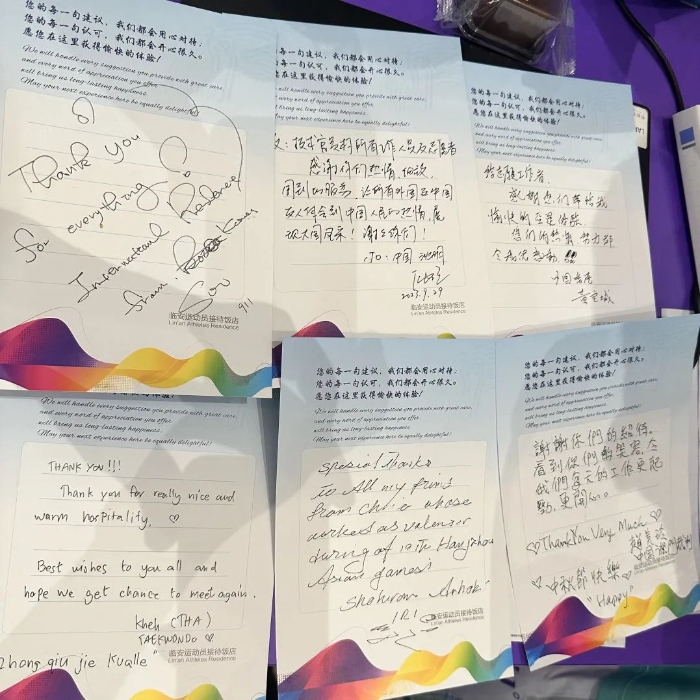 您的每一句建议，我们都会用心对待；
您的每一句认可，我们都会开心很久。
愿您在这里获得愉快的体验！
We will handle every suggestion you provide with great care,
and every word of appreciation you offer
will bring us long-lasting happiness.
May your next experience here be equally delightful!
Thank you
for everything
International Referee
from Korea
临安运动员接待饭店
Lin'an Athletes Residence
的每一句建议，我们都会用心对待；
的每一句认可，我们都会开心很久。
您在这里获得愉快的体验！
will handle every suggestion you provide with great care,
and every word of appreciation you offer
will bring us long-lasting happiness.
May your next experience here be equally delightful!
所有工作人员及志愿者
感谢你们热情、
周到的服务，让所有外国及中国
友人体会到中国人民的热情，展
现大国风采！谢谢你们！
中国
2023.9.29
临安运动员接待饭店
Lin'an Athletes Residence
您的每一句建议，我们都会用心对待；
您的每一句认可，我们都会开心很久。
愿您在这里获得愉快的体验！
We will handle every suggestion you provide with great care,
and every word of appreciation you offer
will bring us long-lasting happiness.
May your next experience here be equally delightful!
志愿工作者，
愉快的
您们的 努力都
令我
中国香港
临安运动员接待饭店
Lin'an Athletes Residence
We will handle every suggestion you provide with great care,
and every word of appreciation you offer
will bring us long-lasting happiness.
May your next experience here be equally delightful!
THANK YOU!!!
Thank you for really nice and
warm hospitality.
Best wishes to you all and
hope we get chance to meet again.
Kheh (THA)
TAEKWONDO
临安运动员接待饭店
Lin'an Athletes Residence
zhong qiu jie Kualle"
您的每一句建议，我们都会用心对待；
您的每一句认可，我们都会开心很久。
愿您在这里获得愉快的体验！
We will handle every suggestion you provide with great care,
and every word of appreciation you offer
will bring us long-lasting happiness.
May your next experience here be equally delightful!
Spesial Thanks
To All my
from whose
as
during of 19th Hangzhou
Asian games
IRI
临安运动员接待饭店
Lin'an Athletes Residence
您的每一句建议，我们都会用心对待；
您的每一句认可，我们都会开心很久。
愿您在这里获得愉快的体验！
We will handle every suggestion you provide with great care,
and every word of appreciation you offer
will bring us long-lasting happiness.
May your next experience here be equally delightful!
謝謝你們的招待
看到你們的笑容，令
我們每天的工作更起
勁，更開心。
Thank You Very Much
中國澳門
中秋節快樂
"Happy"